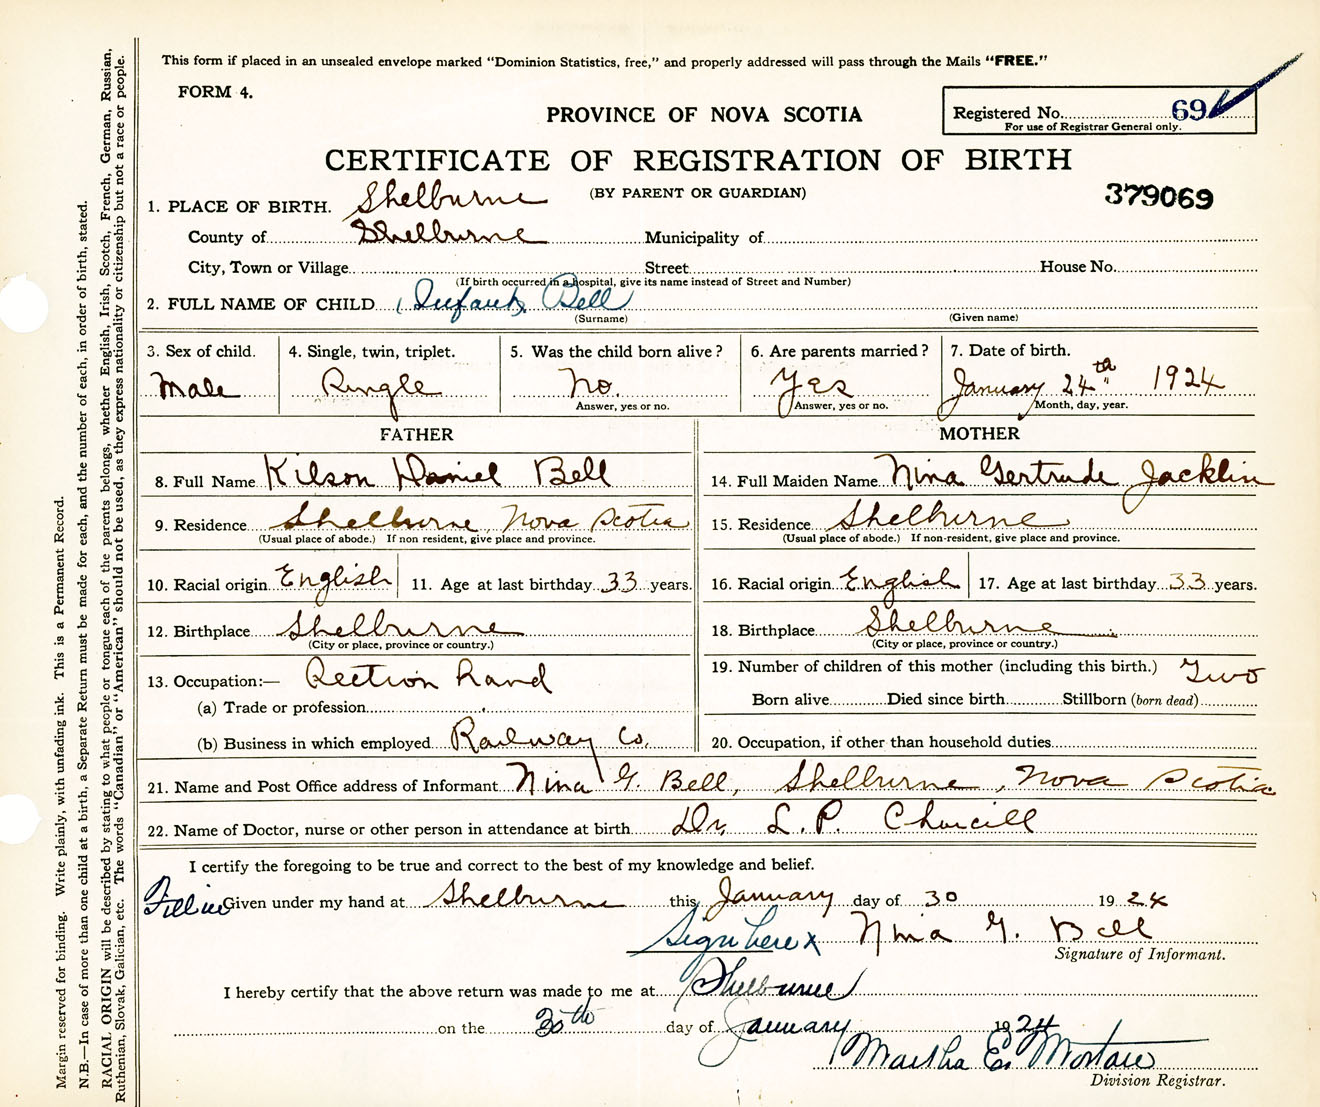 This form if placed in an unsealed envelope marked "Dominion Statistics, free," and properly addressed will pass through the Mails "FREE."
FORM 4.
PROVINCE OF NOVA SCOTIA
Registered No. 69
For use of Registrar General only.
CERTIFICATE OF REGISTRATION OF BIRTH
(BY PARENT OR GUARDIAN)
379069
1. PLACE OF BIRTH. Shelburne
County of Shelburne Municipality of
City, Town or Village Street House No.
(If birth occurred in a hospital, give its name instead of Street and Number)
2. FULL NAME OF CHILD (Infant) Bell
(Surname) (Given name)
3. Sex of child. 4. Single, twin, triplet. 5. Was the child born alive? 6. Are parents married? 7. Date of birth.
Male Single No. Yes January 24th 1924
Answer, yes or no. Answer, yes or no. Month, day, year.
FATHER MOTHER
8. Full Name Kilson Daniel Bell 14. Full Maiden Name Nina Gertrude Jacklin
9. Residence Shelburne, Nova Scotia 15. Residence Shelburne
(Usual place of abode.) If non resident, give place and province. (Usual place of abode.) If non-resident, give place and province.
10. Racial origin English 11. Age at last birthday 33 years. 16. Racial origin English 17. Age at last birthday 33 years.
12. Birthplace Shelburne 18. Birthplace Shelburne
(City or place, province or country.) (City or place, province or country.)
13. Occupation:— Section hand 19. Number of children of this mother (including this birth.) Two
(a) Trade or profession Born alive Died since birth Stillborn (born dead)
(b) Business in which employed Railway Co. 20. Occupation, if other than household duties
21. Name and Post Office address of Informant Nina G. Bell, Shelburne, Nova Scotia
22. Name of Doctor, nurse or other person in attendance at birth Dr. L. P. Churcill
I certify the foregoing to be true and correct to the best of my knowledge and belief.
Fill in Given under my hand at Shelburne this January day of 30 1924
Sign here x Nina G. Bell
Signature of Informant.
I hereby certify that the above return was made to me at Shelburne
on the 30th day of January 1924
Martha E.
Division Registrar.
Margin reserved for binding. Write plainly, with unfading ink. This is a Permanent Record.
N.B.—In case of more than one child at a birth, a Separate Return must be made for each, and the number of each, in order of birth, stated.
RACIAL ORIGIN will be described by stating to what people or tongue each of the parents belongs, whether English, Irish, Scotch, French, German, Russian,
Ruthenian, Slovak, Galician, etc. The words "Canadian" or "American" should not be used, as they express nationality or citizenship but not a race or people.